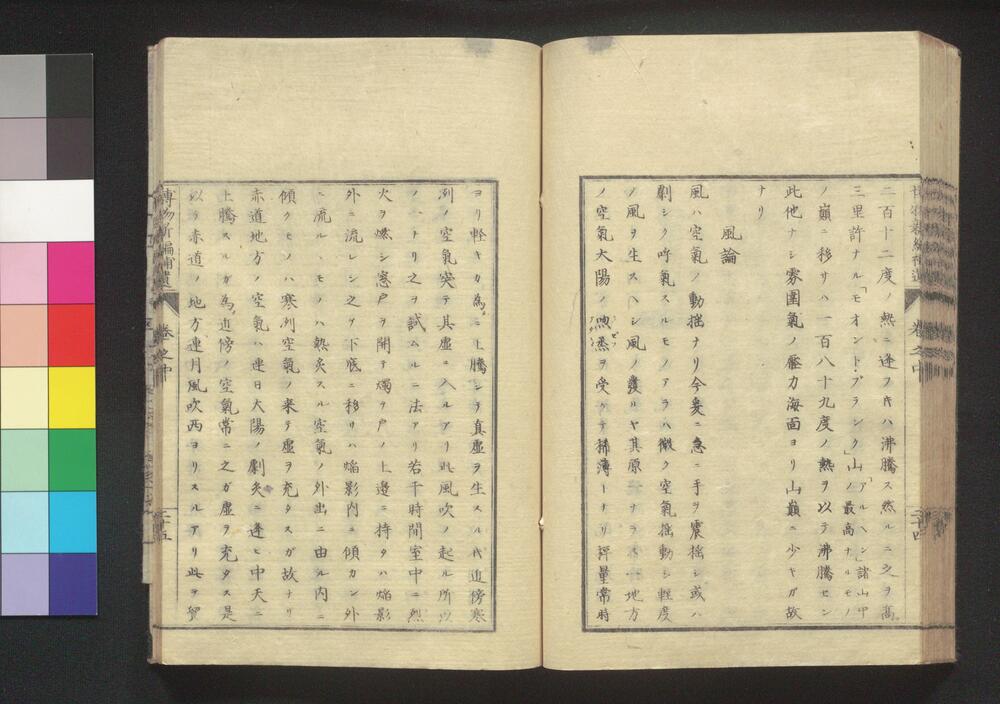 二百十二度ノ熱ニ逢フ片ハ沸騰ス然ルニ之ヲ高
三里許ナル「モオント・ブランク」山ノ「アルヘン」諸山中ノ最高ナルモノ
ノ巓ニ移サハ一百八十九度ノ熱ヲ以テ沸騰セン
此他ナシ雰圍氣ノ壓力海面ヨリ山巓ニ少キガ故
ナリ
風論
風ハ空氣ノ動揺ナリ今爰ニ急ニ手ヲ震揺シ或ハ
劇シク呼氣スルモノアラハ微ク空氣揺動シ輕度
ノ風ヲ生スヘシ風ノ發ルヤ其原一ナラス一地方
ノ空氣大陽ノ煦蒸ヲ受ケテ稀薄トナリ秤量常時
ヨリ軽キカ為ニ上騰シテ真虚ヲ生スル片近傍寒
冽ノ空氣突テ其虚ニ入ルアリ此風吹ノ起ル所以
ノ一ナリ之ヲ試ムルニ法アリ若干時間室中ニ烈
火ヲ燃シ窓戸ヲ開テ燭ヲ戸ノ上邊ニ持タハ焔影
外ニ流レシ之ヲ下底ニ移サハ焔影内ニ傾カン外
ニ流ルヽモノハ熱炙スル空氣ノ外出ニ由ル内ニ
傾クモノハ寒冽空氣ノ来テ虚ヲ充タスガ故ナリ
赤道地方ノ空氣ハ連日大陽ノ劇炙ニ逢ヒ中天ニ
上騰スルガ為近傍ノ空氣常ニ之ガ虚ヲ充タス是
以テ赤道ノ地方連月風吹西ヨリスルアリ此ヲ貿
博物新編補遺
巻之中
二十五